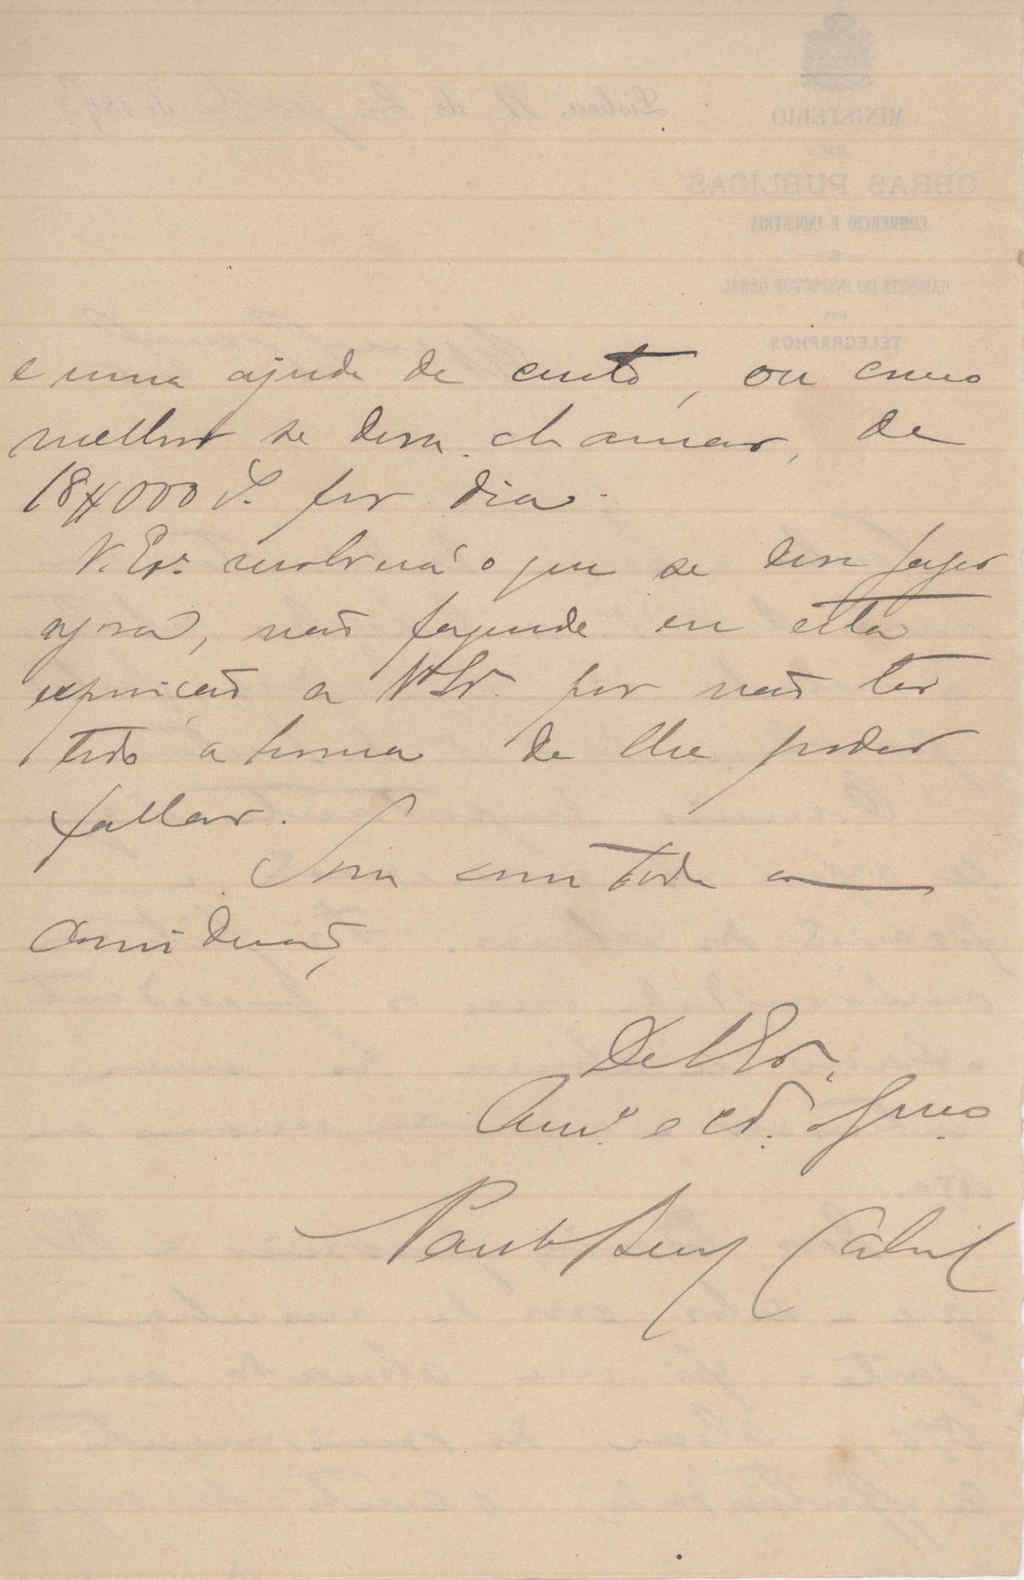 e uma ajuda de custo, ou como
melhor se deva chamar, de
18$000 rs. por dia.
V. Exa. resolverá o que se deve fazer
agora, não fazendo eu esta
exposição a V. Exa. por não ter
tido a honra de lhe poder
fallar.
Sou com toda a
consideração,
De V. Exa.
Amo. e cr.
Paulo Benj. Cabral